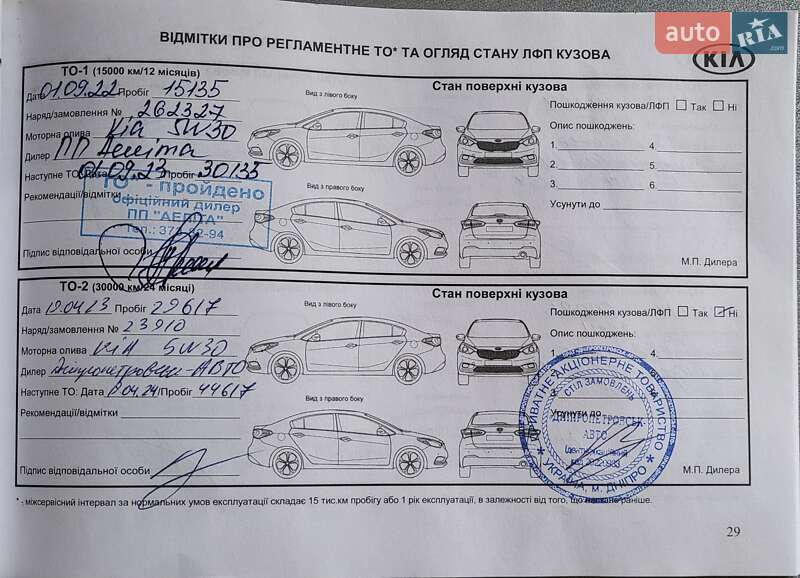 auto RIA.com
ВІДМІТКИ ПРО РЕГЛАМЕНТНЕ ТО* ТА ОГЛЯД СТАНУ ЛФП КУЗОВА
KIA
ТО-1 (15000 км/12 місяців)
Стан поверхні кузова
Дата 01.09.22 Пробіг 15135
Вид з лівого боку
Пошкодження кузова/ЛФП Так Ні
Наряд/замовлення № 262327
Опис пошкоджень:
Моторна олива Kia 5W30
1. 4.
Дилер ПП Аеліта
2. 5.
Наступне ТО: Дата 01.09.23 Пробіг 30135
3. 6.
Вид з правого боку
Рекомендації/відмітки
Усунути до
ТО - пройдено
Офіційний дилер
ПП "АЕЛІТА"
Підпис відповідальної особи
М.П. Дилера
ТО-2 (30000 км/24 місяці)
Стан поверхні кузова
Дата Пробіг 29617
Вид з лівого боку
Пошкодження кузова/ЛФП Так Ні
Наряд/замовлення № 23910
Опис пошкоджень:
Моторна олива КіА 5W30
4.
Дилер Дніпропетровськ-АВТО
Наступне ТО: Дата Пробіг 44617
Вид з правого боку
Рекомендації/відмітки
Усунути до
ПРИВАТНЕ АКЦІОНЕРНЕ ТОВАРИСТВО
СТІЛ ЗАМОВЛЕНЬ
ДНІПРОПЕТРОВСЬК
АВТО
* УКРАЇНА, м. ДНІПРО *
Підпис відповідальної особи
М.П. Дилера
* - міжсервісний інтервал за нормальних умов експлуатації складає 15 тис.км пробігу або 1 рік експлуатації, в залежності від того, що настане раніше.
29